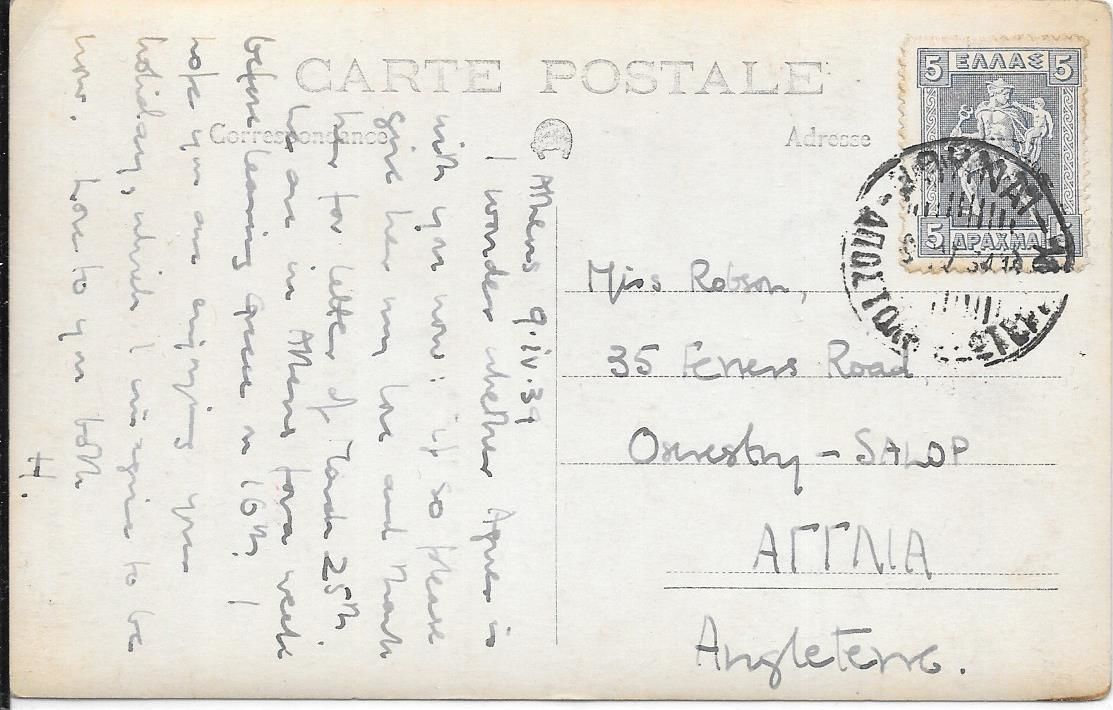 CARTE POSTALE
Correspondance
Adresse
Athens 9.iv.39
I wonder whether Agnes is
with you now: if so please
give her my love and thank
her for letter of March 25th
We are in Athens for a week
before leaving Greece on 16th. I
hope you are enjoying your
holiday, which I imagine to be
now. Love to you both
H.
Miss Robson,
35 Ferrers Road
Oswestry – SALOP
ΑΓΓΛΙΑ
Angleterre.
5 ΕΛΛΑΣ 5
5 ΔΡΑΧΜΑΙ 5
ΑΘΗΝΑΙ